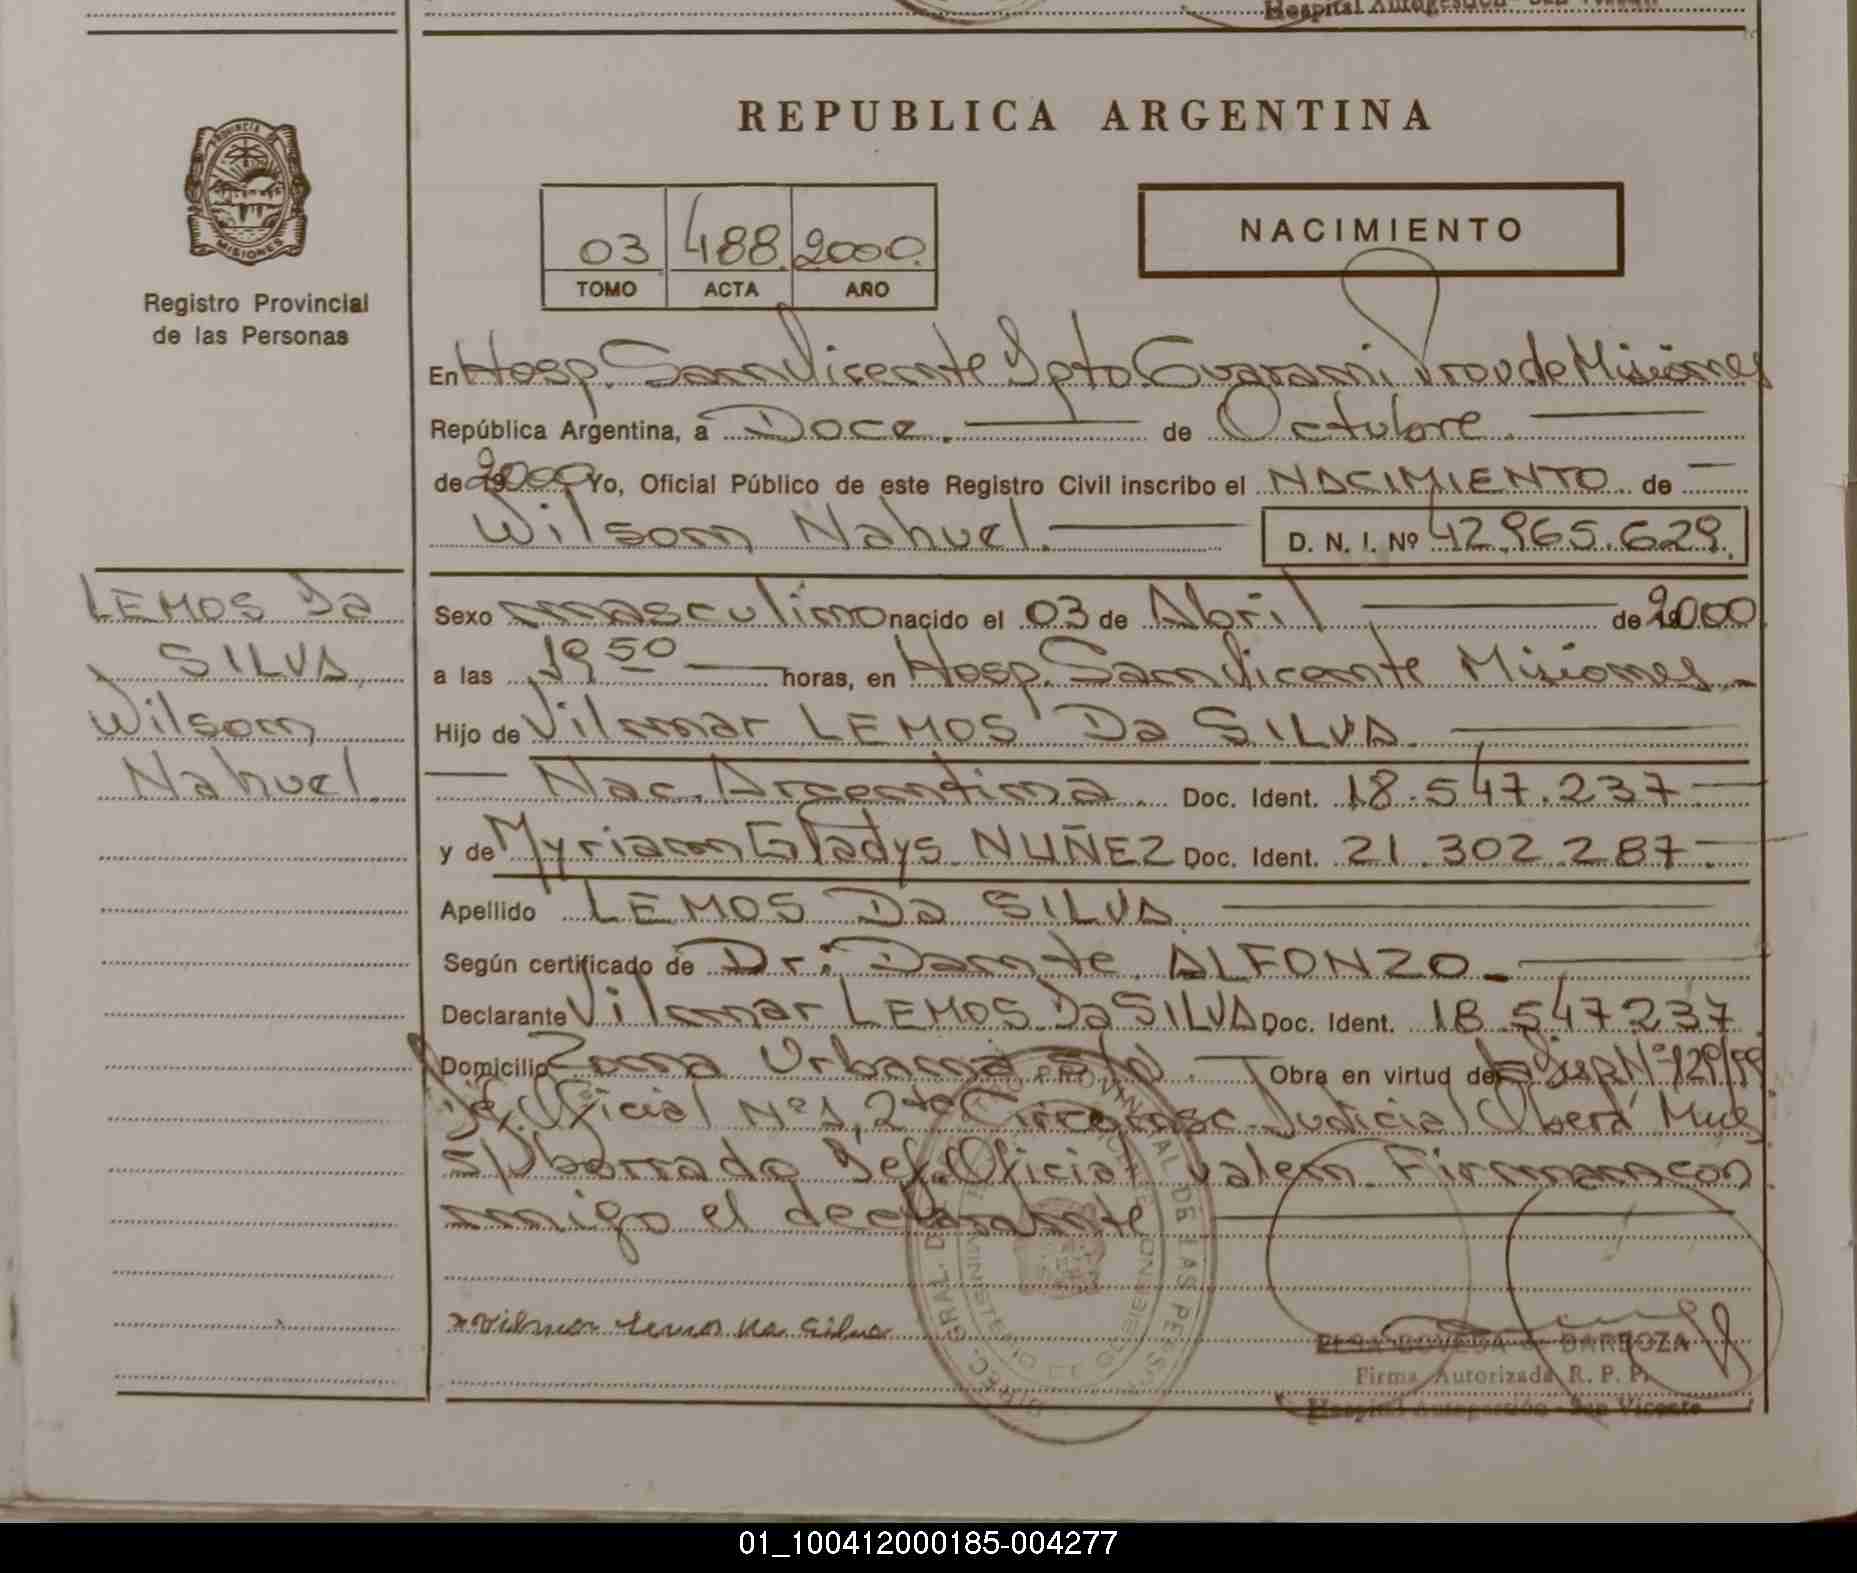 Hospital Autogestión - San Vicente
REPUBLICA ARGENTINA
PROVINCIA DE MISIONES
Registro Provincial
de las Personas
03 488 2000
TOMO ACTA AÑO
NACIMIENTO
En Hosp. San Vicente Dpto Guarani Prov de Misiones
República Argentina, a Doce. de Octubre
de 2000 Yo, Oficial Público de este Registro Civil inscribo el NACIMIENTO de
Wilson Nahuel. D. N. I. Nº 42.965.629.
LEMOS Da
SILVA,
Wilson
Nahuel
Sexo masculino nacido el 03 de Abril de 2000
a las 19 50 horas, en Hosp. San Vicente Misiones
Hijo de Vilmar LEMOS Da SILVA.
Nac. Argentina. Doc. Ident. 18.547.237
y de Myriam Gladys NUÑEZ Doc. Ident. 21.302.287
Apellido LEMOS Da SILVA
Según certificado de Dr: Dante ALFONZO
Declarante Vilmar LEMOS Da SILVA Doc. Ident. 18.547.237
Domicilio Zona Urbana s/n. Obra en virtud de Nº 129/99
Def. Oficial Nº 1, 2da Circunsc. Judicial Oberá Mnes
s/borrado Def. Oficial valen. Firman con
migo el declarante
Vilmar Lemos Da Silva
ELSA BOVEDA de BARBOZA
Firma Autorizada R. P. P.
Hospital Autogestión - San Vicente
01_100412000185-004277